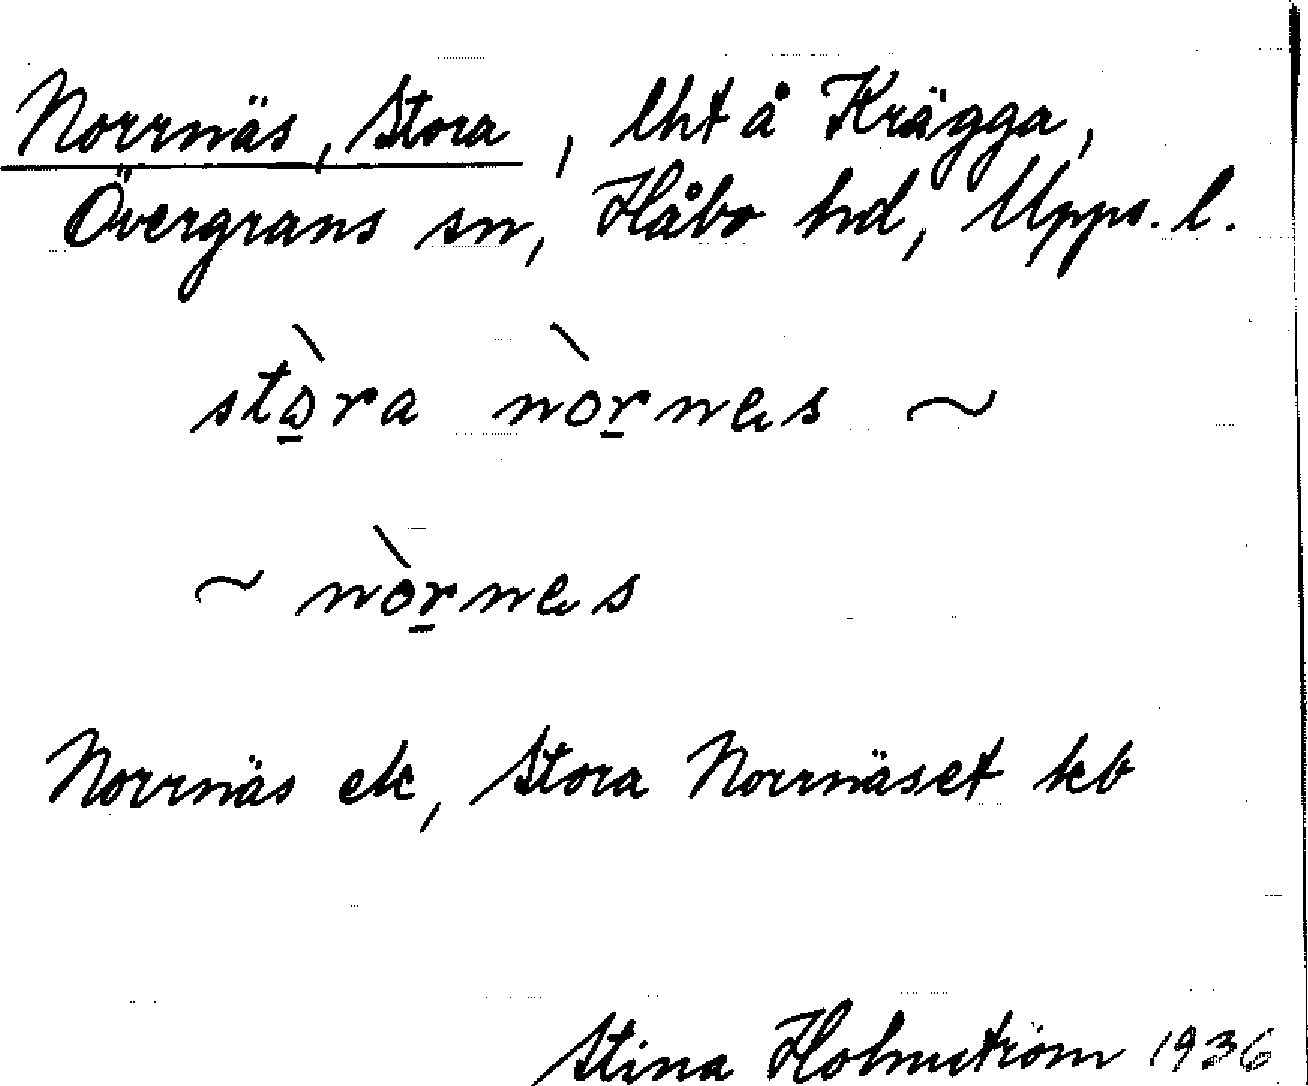 Norrnäs, Stora, lht å Krägga,
Övergrans sn, Håbo hd, Upps. l.
stò̱ra nòṟnes ~
~ nòṟnes
Norrnäs ek, Stora Norrnäset kb
Stina Holmström 1936